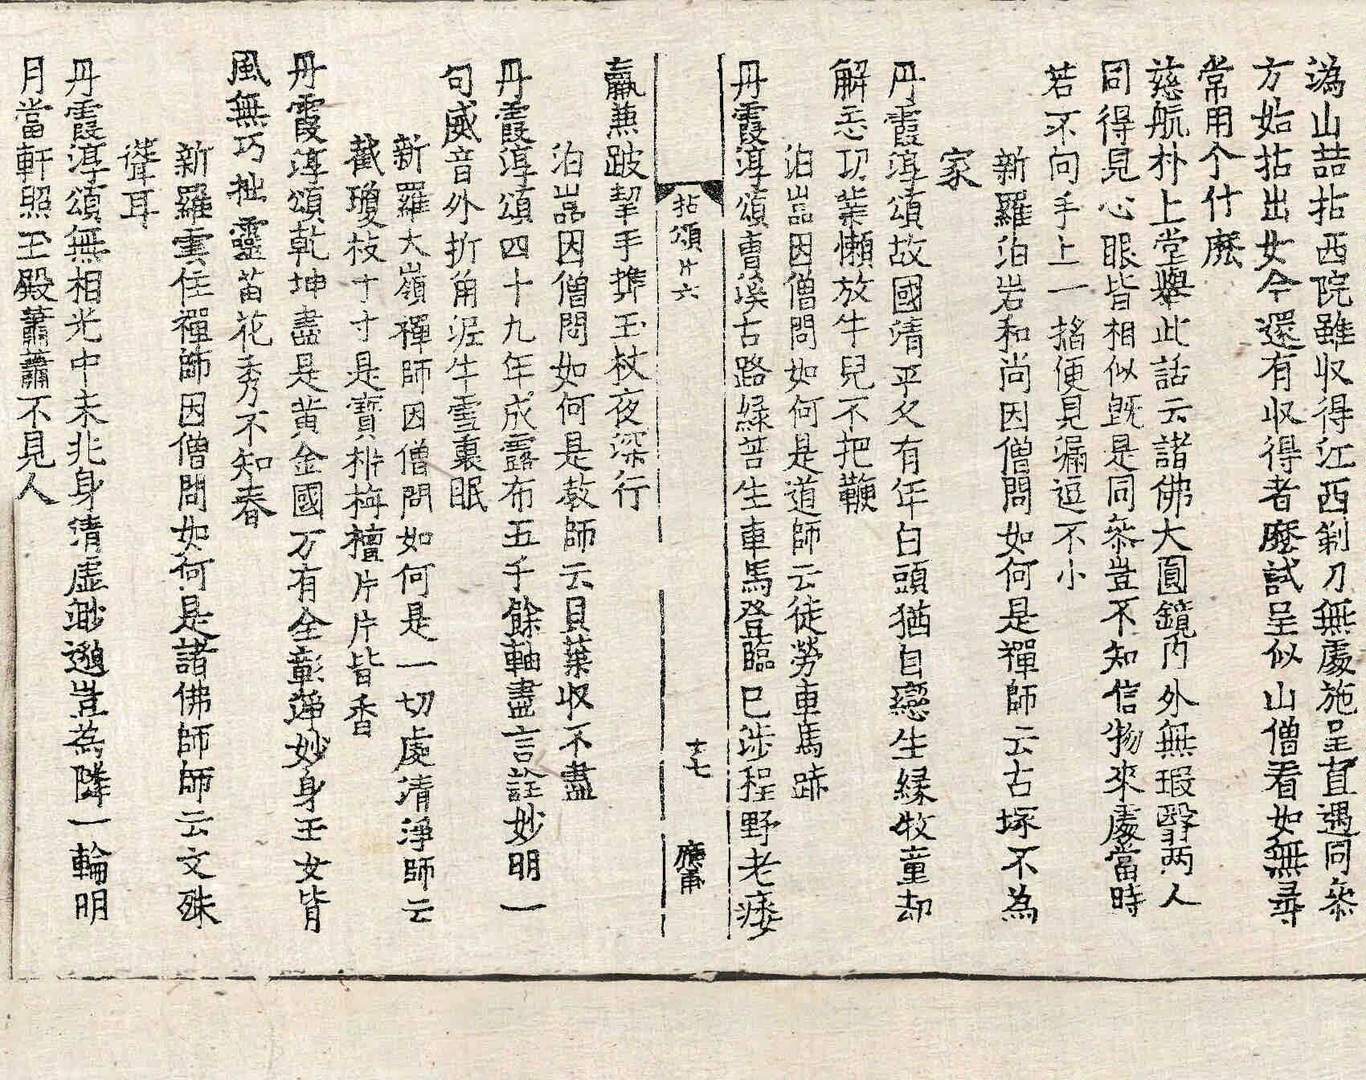 溈山喆拈西院雖収得江西剃刀無處施呈直遇同叅
方始拈出如今還有収得者麽試呈似山僧看如無尋
常用个什麽
慈航朴上堂舉此話云諸佛大圓鏡內外無瑕翳兩人
同得見心眼皆相似旣是同叅豈不知信物來處當時
若不向手上一搯便見漏逗不小
新羅泊岩和尚因僧問如何是禪師云古塚不為
家
丹霞淳頌故國淸平久有年白頭猶自戀生緣牧童却
解忘功業懶放牛兒不把鞭
泊嵓因僧問如何是道師云徒勞車馬跡
丹霞淳頌曹溪古路綠苔生車馬登臨已涉程野老痿
拈頌片六
十七
應甫
羸兼跛挈手擕玉杖夜深行
泊嵓因僧問如何是敎師云貝葉収不盡
丹霞淳頌四十九年成露布五千餘軸盡言詮妙明一
句威音外折角泥牛雪裏眠
新羅大嶺禪師因僧問如何是一切處淸淨師云
截瓊枝寸寸是寶析栴檀片片皆香
丹霞淳頌乾坤盡是黃金國万有全彰淨妙身玉女背
風無巧拙靈苗花秀不知春
新羅雲住禪師因僧問如何是諸佛師師云文殊
聳耳
丹霞淳頌無相光中未兆身淸虛𨓏邈豈為隣一輪明
月當軒照玉殿蕭蕭不見人